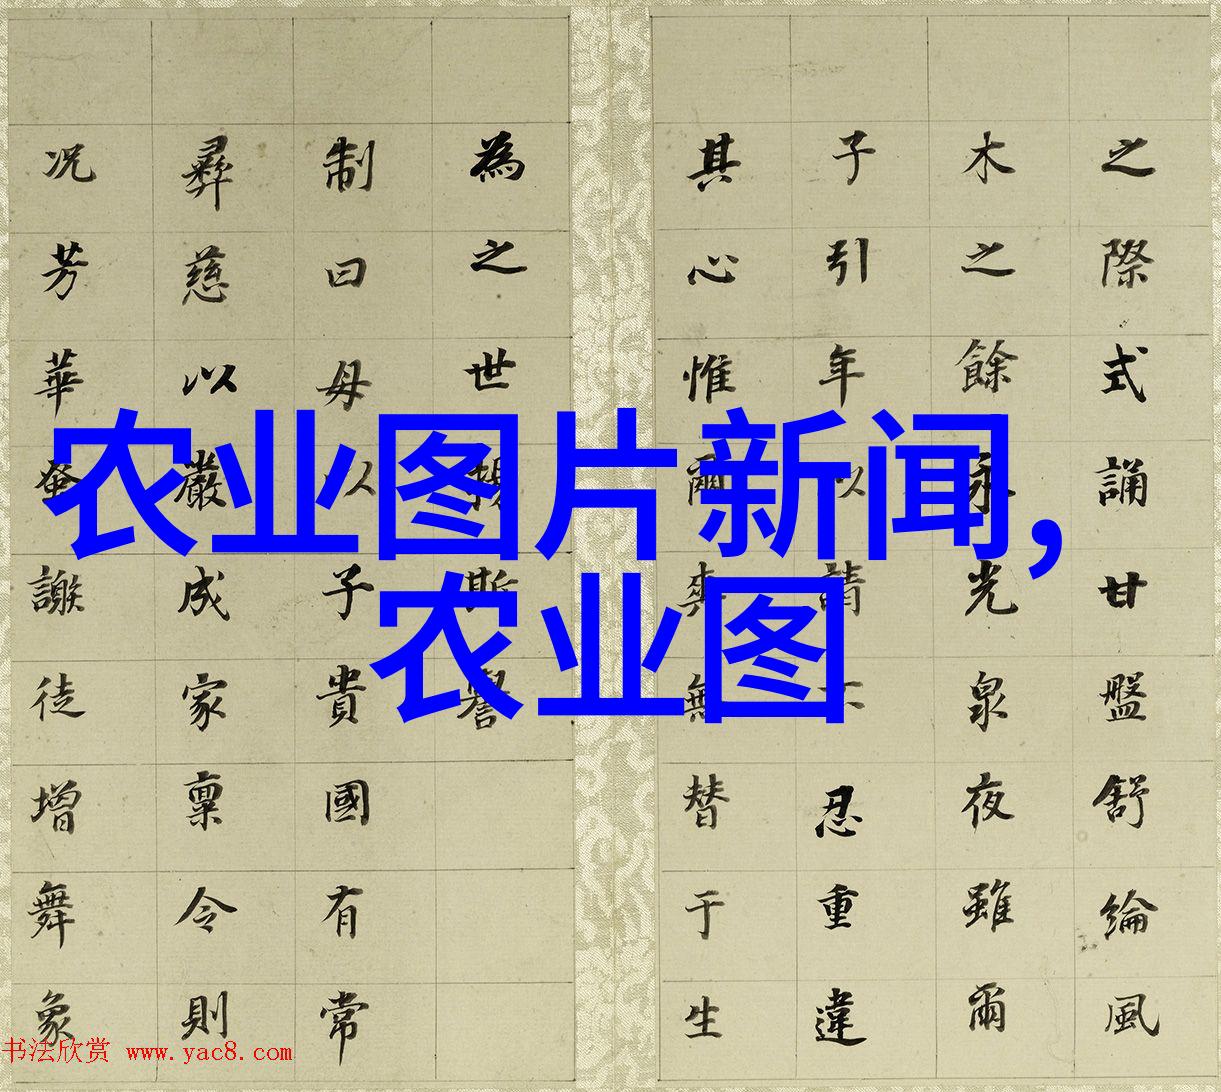 之際式誦甘盤舒綸風
木之餘永光泉夜雖爾
子引年以請不忍重違
其心惟爾奭無替于生
為之世揚斯譽
制曰母以子貴國有常
彝慈以嚴成家稟令則
况芳華蚤謝徒增舞象
农业图片新闻,
农业图
书法欣赏 www.yac8.com